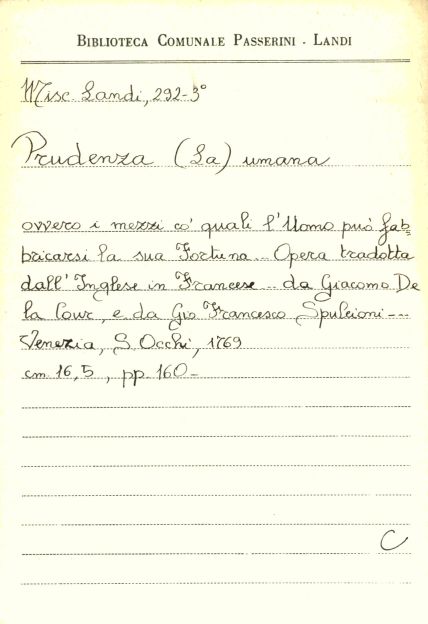 BIBLIOTECA COMUNALE PASSERINI - LANDI
Misc. Landi, 292-3°
Prudenza (La) umana
ovvero i mezzi co' quali l'Uomo può fab=
bricarsi la sua Fortuna.. Opera tradotta
dall'Inglese in Francese .. da Giacomo De
la Cour, e da Gio Francesco Spulcioni ---
Venezia, S. Occhi, 1769
cm. 16,5, pp. 160-
C